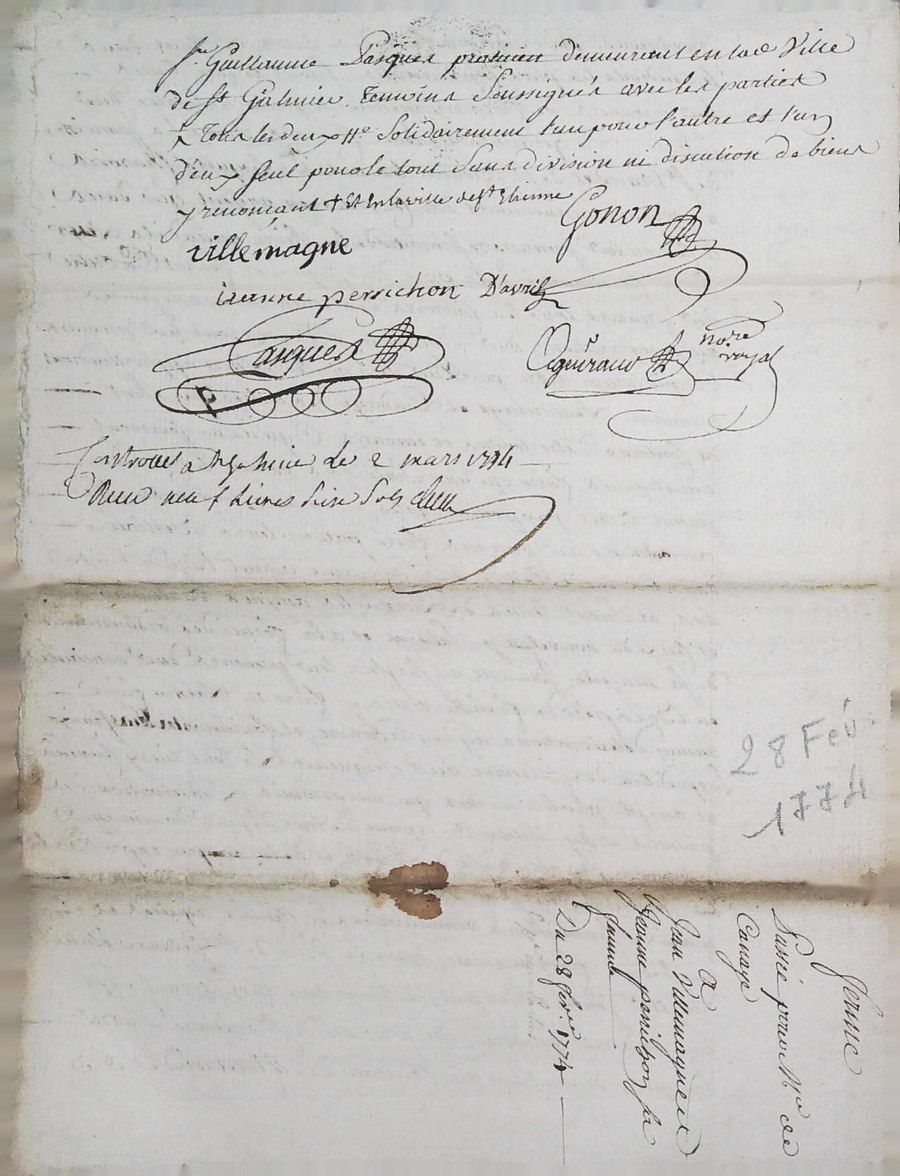 Sr Guillaume Pasquet praticien demeurant en lad Ville
de St Galmier temoins Soussignés avec les parties
+ tous les deux Solidairement l'un pour l'autre et l'un
d'eux seul pour le tout sans division ni discution de biens
y renoncant + Et en la ville de St Etienne
Gonon
villemagne
jeanne perrichon D'avril
Pasquet
guiraud nore
royal
Controllé a St Galmier le 2 mars 1774
Reçu neuf Livres Seize Sols
28 Fév
1774
ferme
Passé par Mr de
a
Jean Villemagne et
Jeanne perrichon sa
femme
Du 28 fevr. 1774